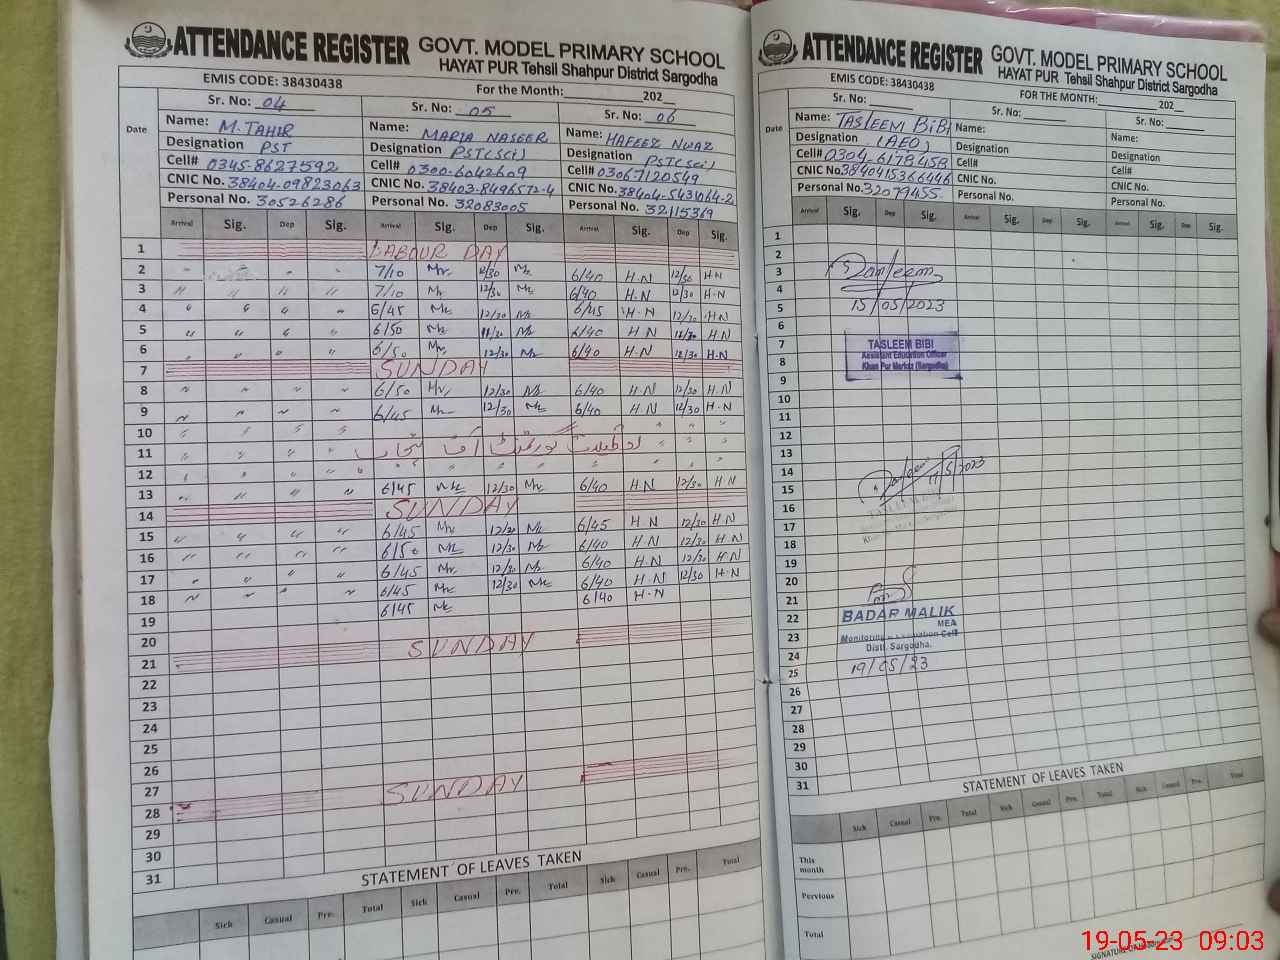 ATTENDANCE REGISTER GOVT. MODEL PRIMARY SCHOOL
HAYAT PUR Tehsil Shahpur District Sargodha
EMIS CODE: 38430438 For the Month: 202
Date Sr. No: 04 Sr. No: 05 Sr. No: 06
Name: M. TAHIR Name: MARIA NASEER Name: HAFEEZ
Designation PST Designation PST(Sci) Designation PST(Sci)
Cell# 0345-8627592 Cell# 0300-6042609 Cell# 0306-7120549
CNIC No. 38404-09823063 CNIC No. 38403-8496572-4 CNIC No. 38404-5431064-2
Personal No. 30526286 Personal No. 32083005 Personal No. 32115369
Arrival Sig. Dep Sig. Arrival Sig. Dep Sig. Arrival Sig. Dep Sig.
1 LABOUR DAY
2 7/10 12/30 6/40 H.N 12/30 H.N
3 7/10 12/30 6/40 H.N 12/30 H.N
4 6/45 12/30 6/45 H.N 12/30 H.N
5 6/50 11/30 6/40 H.N 12/30 H.N
6 6/50 12/30 6/40 H.N 12/30 H.N
7 SUNDAY
8 6/50 12/30 6/40 H.N 12/30 H.N
9 6/45 12/30 6/40 H.N 12/30 H.N
10
11
12
13 6/45 12/30 6/40 H.N 12/30 H.N
14 SUNDAY
15 6/45 12/30 6/45 H.N 12/30 H.N
16 6/50 12/30 6/40 H.N 12/30 H.N
17 6/45 12/30 6/40 H.N 12/30 H.N
18 6/45 12/30 6/40 H.N 12/30 H.N
19 6/45 6/40 H.N
20
21 SUNDAY
22
23
24
25
26
27
28 SUNDAY
29
30
31
STATEMENT OF LEAVES TAKEN
Sick Casual Pre. Total Sick Casual Pre. Total Sick Casual Pre. Total
ATTENDANCE REGISTER GOVT. MODEL PRIMARY SCHOOL
HAYAT PUR Tehsil Shahpur District Sargodha
EMIS CODE: 38430438 FOR THE MONTH: 202
Date Sr. No: Sr. No: Sr. No:
Name: TASLEEM BIBI Name: Name:
Designation (AEO) Designation Designation
Cell# 0304-6178458 Cell# Cell#
CNIC No. 3840415366446 CNIC No. CNIC No.
Personal No. 32079455 Personal No. Personal No.
Arrival Sig. Dep Sig. Arrival Sig. Dep Sig. Arrival Sig. Dep Sig.
1
2
3 Tasleem
4
5 15/05/2023
6
7 TASLEEM BIBI
Assistant Education Officer
8 Khan Pur Markaz (Sargodha)
9
10
11
12
13
14
15
16
17
18
19
20
21
22 BADAR MALIK
MEA
23 Monitoring & Evaluation Cell
Distt. Sargodha.
24
25 19/05/23
26
27
28
29
30
31
STATEMENT OF LEAVES TAKEN
Sick Casual Pre. Total Sick Casual Pre. Total Sick Casual Pre. Total
This month
Pervious
Total
19-05-23 09:03